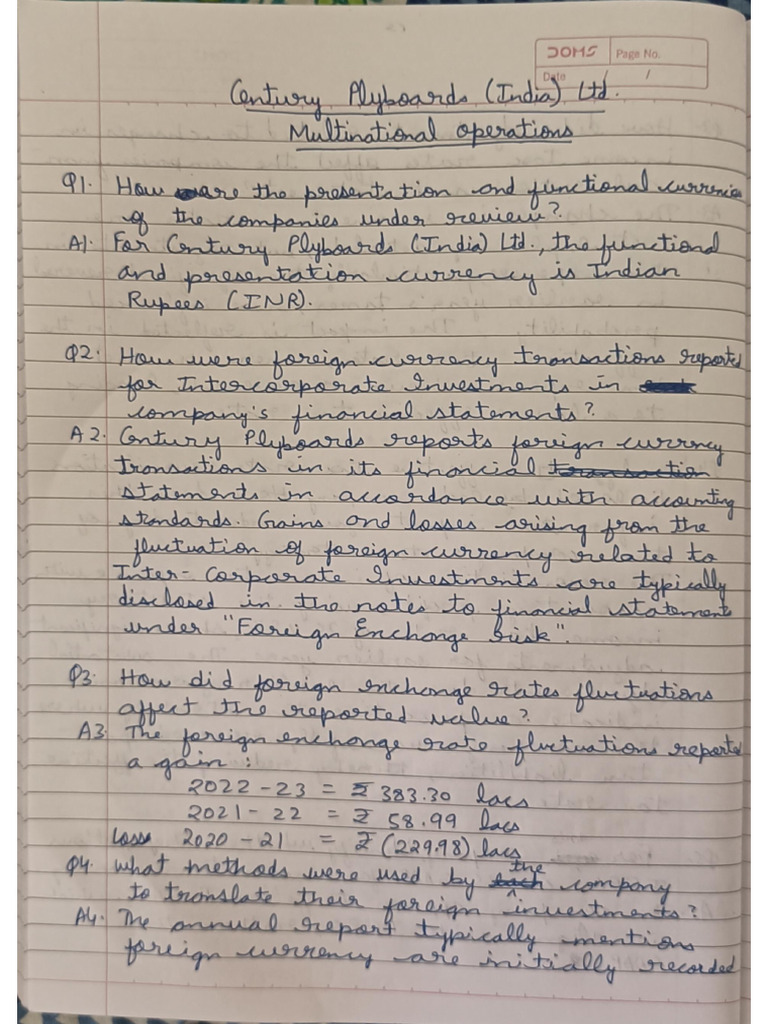 DOMS Page No.
Date / /
Century Plyboards (India) Ltd.
Multinational operations
Q1. How are the presentation and functional currencies
of the companies under review?
A1. For Century Plyboards (India) Ltd., the functional
and presentation currency is Indian
Rupees (INR).
Q2. How were foreign currency transactions reported
for Intercorporate Investments in
company's financial statements?
A2. Century Plyboards reports foreign currency
transactions in its financial transaction
statements in accordance with accounting
standards. Gains and losses arising from the
fluctuation of foreign currency related to
Inter-Corporate Investments are typically
disclosed in the notes to financial statements
under "Foreign Exchange Risk".
Q3. How did foreign exchange rates fluctuations
affect the reported value?
A3. The foreign exchange rate fluctuations reported
a gain :
2022-23 = ₹ 383.30 lacs
2021-22 = ₹ 58.99 lacs
Loss 2020-21 = ₹ (229.98) lacs
Q4. What methods were used by each the company
to translate their foreign investments?
A4. The annual report typically mentions
foreign currency are initially recorded